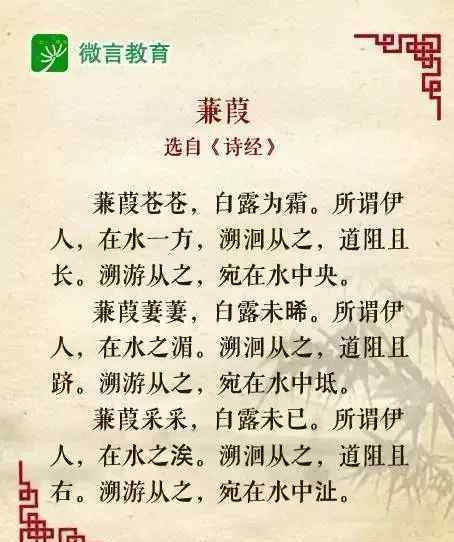 微言教育
蒹葭
选自《诗经》
蒹葭苍苍，白露为霜。所谓伊
人，在水一方，溯洄从之，道阻且
长。溯游从之，宛在水中央。
蒹葭萋萋，白露未晞。所谓伊
人，在水之湄。溯洄从之，道阻且
跻。溯游从之，宛在水中坻。
蒹葭采采，白露未已。所谓伊
人，在水之涘。溯洄从之，道阻且
右。溯游从之，宛在水中沚。